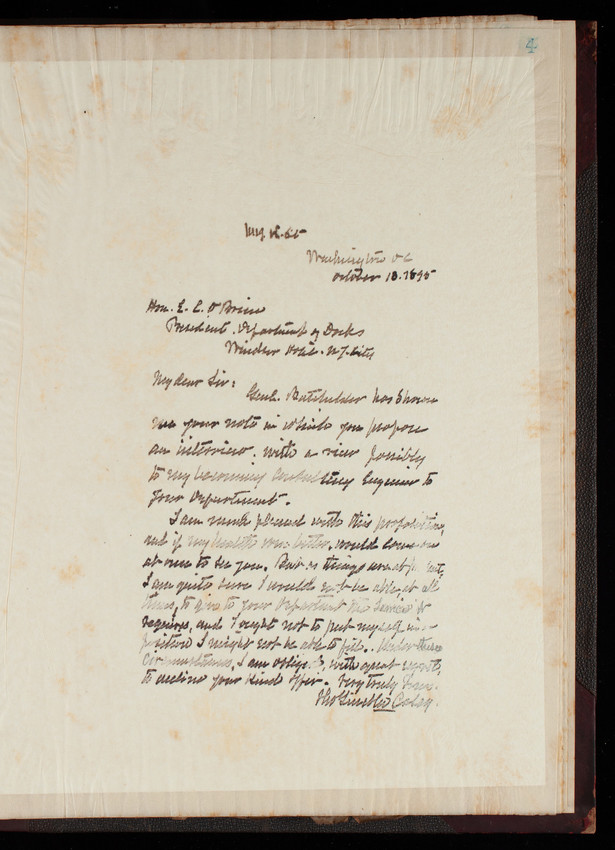 4
Washington DC
October 10. 1895
Hon. E. C. O'Brien
President. Department of Docks
Windsor Hotel. N.Y. City
My dear Sir:
Genl. Batchelder has shown
me your note in which you propose
an interview, with a view possibly
to my becoming Consulting Engineer to
your Department.
I am much pleased with this proposition,
and if my health were better, would come on
at once to see you. But as things are at present,
I am quite sure I would not be able, at all
times, to give to your Department the service it
requires, and I ought not to put myself in a
position I might not be able to fill. Under these
circumstances, I am obliged, with great regrets,
to decline your kind offer. Very truly Yours.
Thos Lincoln Casey.